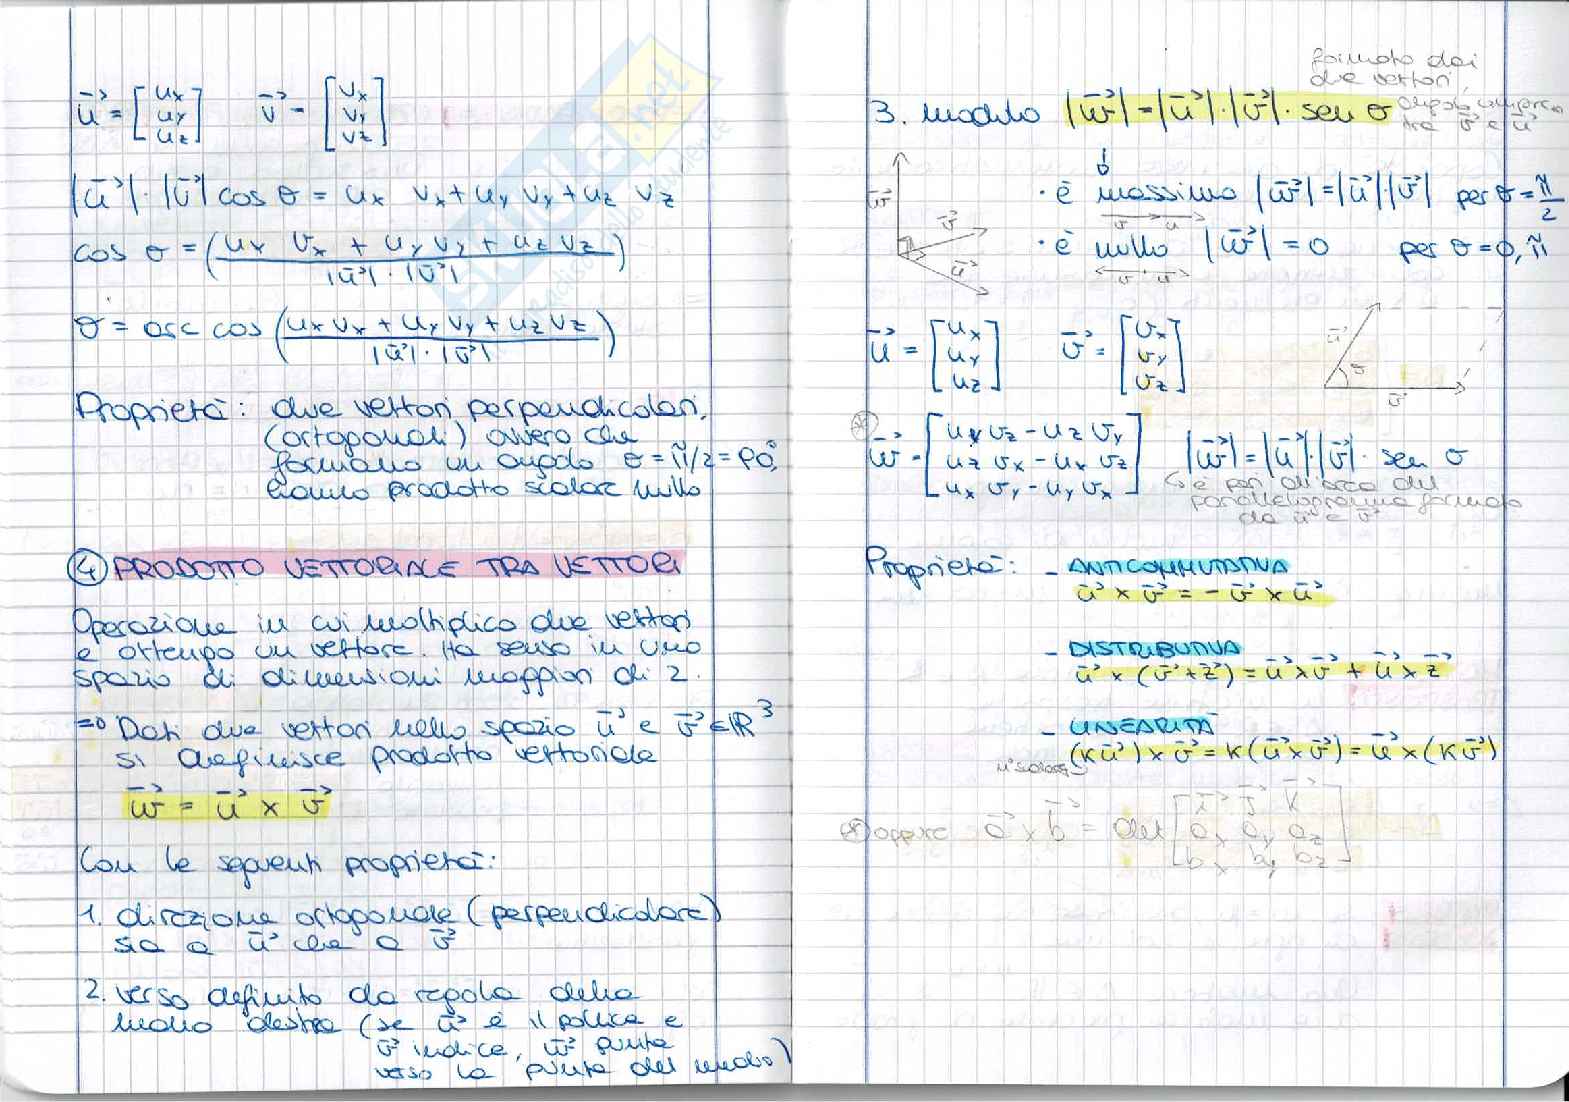 u⃗ = [ux uy uz] v⃗ = [vx vy vz]
|u⃗| · |v⃗| cos θ = ux vx + uy vy + uz vz
cos θ = (ux vx + uy vy + uz vz / |u⃗| · |v⃗|)
θ = arc cos (ux vx + uy vy + uz vz / |u⃗| · |v⃗|)
Proprietà: due vettori perpendicolari,
(ortogonali) ovvero che
formano un angolo θ = π/2 = 90°,
hanno prodotto scalare nullo
④ PRODOTTO VETTORIALE TRA VETTORI
Operazione in cui moltiplico due vettori
e ottengo un vettore. Ha senso in uno
spazio di dimensioni maggiori di 2.
=> Dati due vettori nello spazio u⃗ e v⃗ ∈ ℝ³
si definisce prodotto vettoriale
w⃗ = u⃗ × v⃗
Con le seguenti proprietà:
1. direzione ortogonale (perpendicolare)
sia a u⃗ che a v⃗
2. verso definito da regola della
mano destra (se u⃗ è il pollice e
v⃗ indice, w⃗ punta
verso la punta del medio)
formato dai
due vettori,
3. modulo |w⃗| = |u⃗| · |v⃗| · sen θ angolo compreso
tra v⃗ e u⃗
· è massimo |w⃗| = |u⃗| |v⃗| per θ = π/2
v u
· è nullo |w⃗| = 0 per θ = 0, π
v u
w⃗
v⃗
u⃗
u⃗ = [ux uy uz] v⃗ = [vx vy vz]
u⃗
θ
v⃗
(*)
w⃗ = [uy vz - uz vy
uz vx - ux vz
ux vy - uy vx] |w⃗| = |u⃗| · |v⃗| · sen θ
è pari all'area del
parallelogramma formato
da u⃗ e v⃗
Proprietà: - ANTICOMMUTATIVA
u⃗ × v⃗ = - v⃗ × u⃗
- DISTRIBUTIVA
u⃗ × (v⃗ + z⃗) = u⃗ × v⃗ + u⃗ × z⃗
- LINEARITÀ
(K u⃗) × v⃗ = K (u⃗ × v⃗) = u⃗ × (K v⃗)
(*) oppure a⃗ × b⃗ = det [i⃗ j⃗ k⃗
ax ay az
bx by bz]
SKUOLA.net